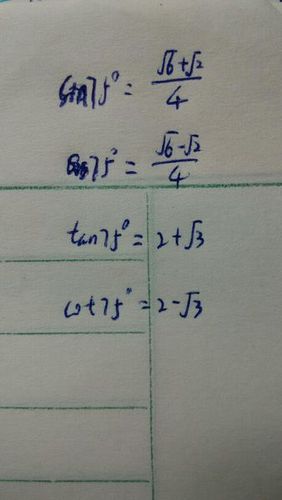 sin75° = (√6+√2)/4
cos75° = (√6-√2)/4
tan75° = 2+√3
cot75° = 2-√3